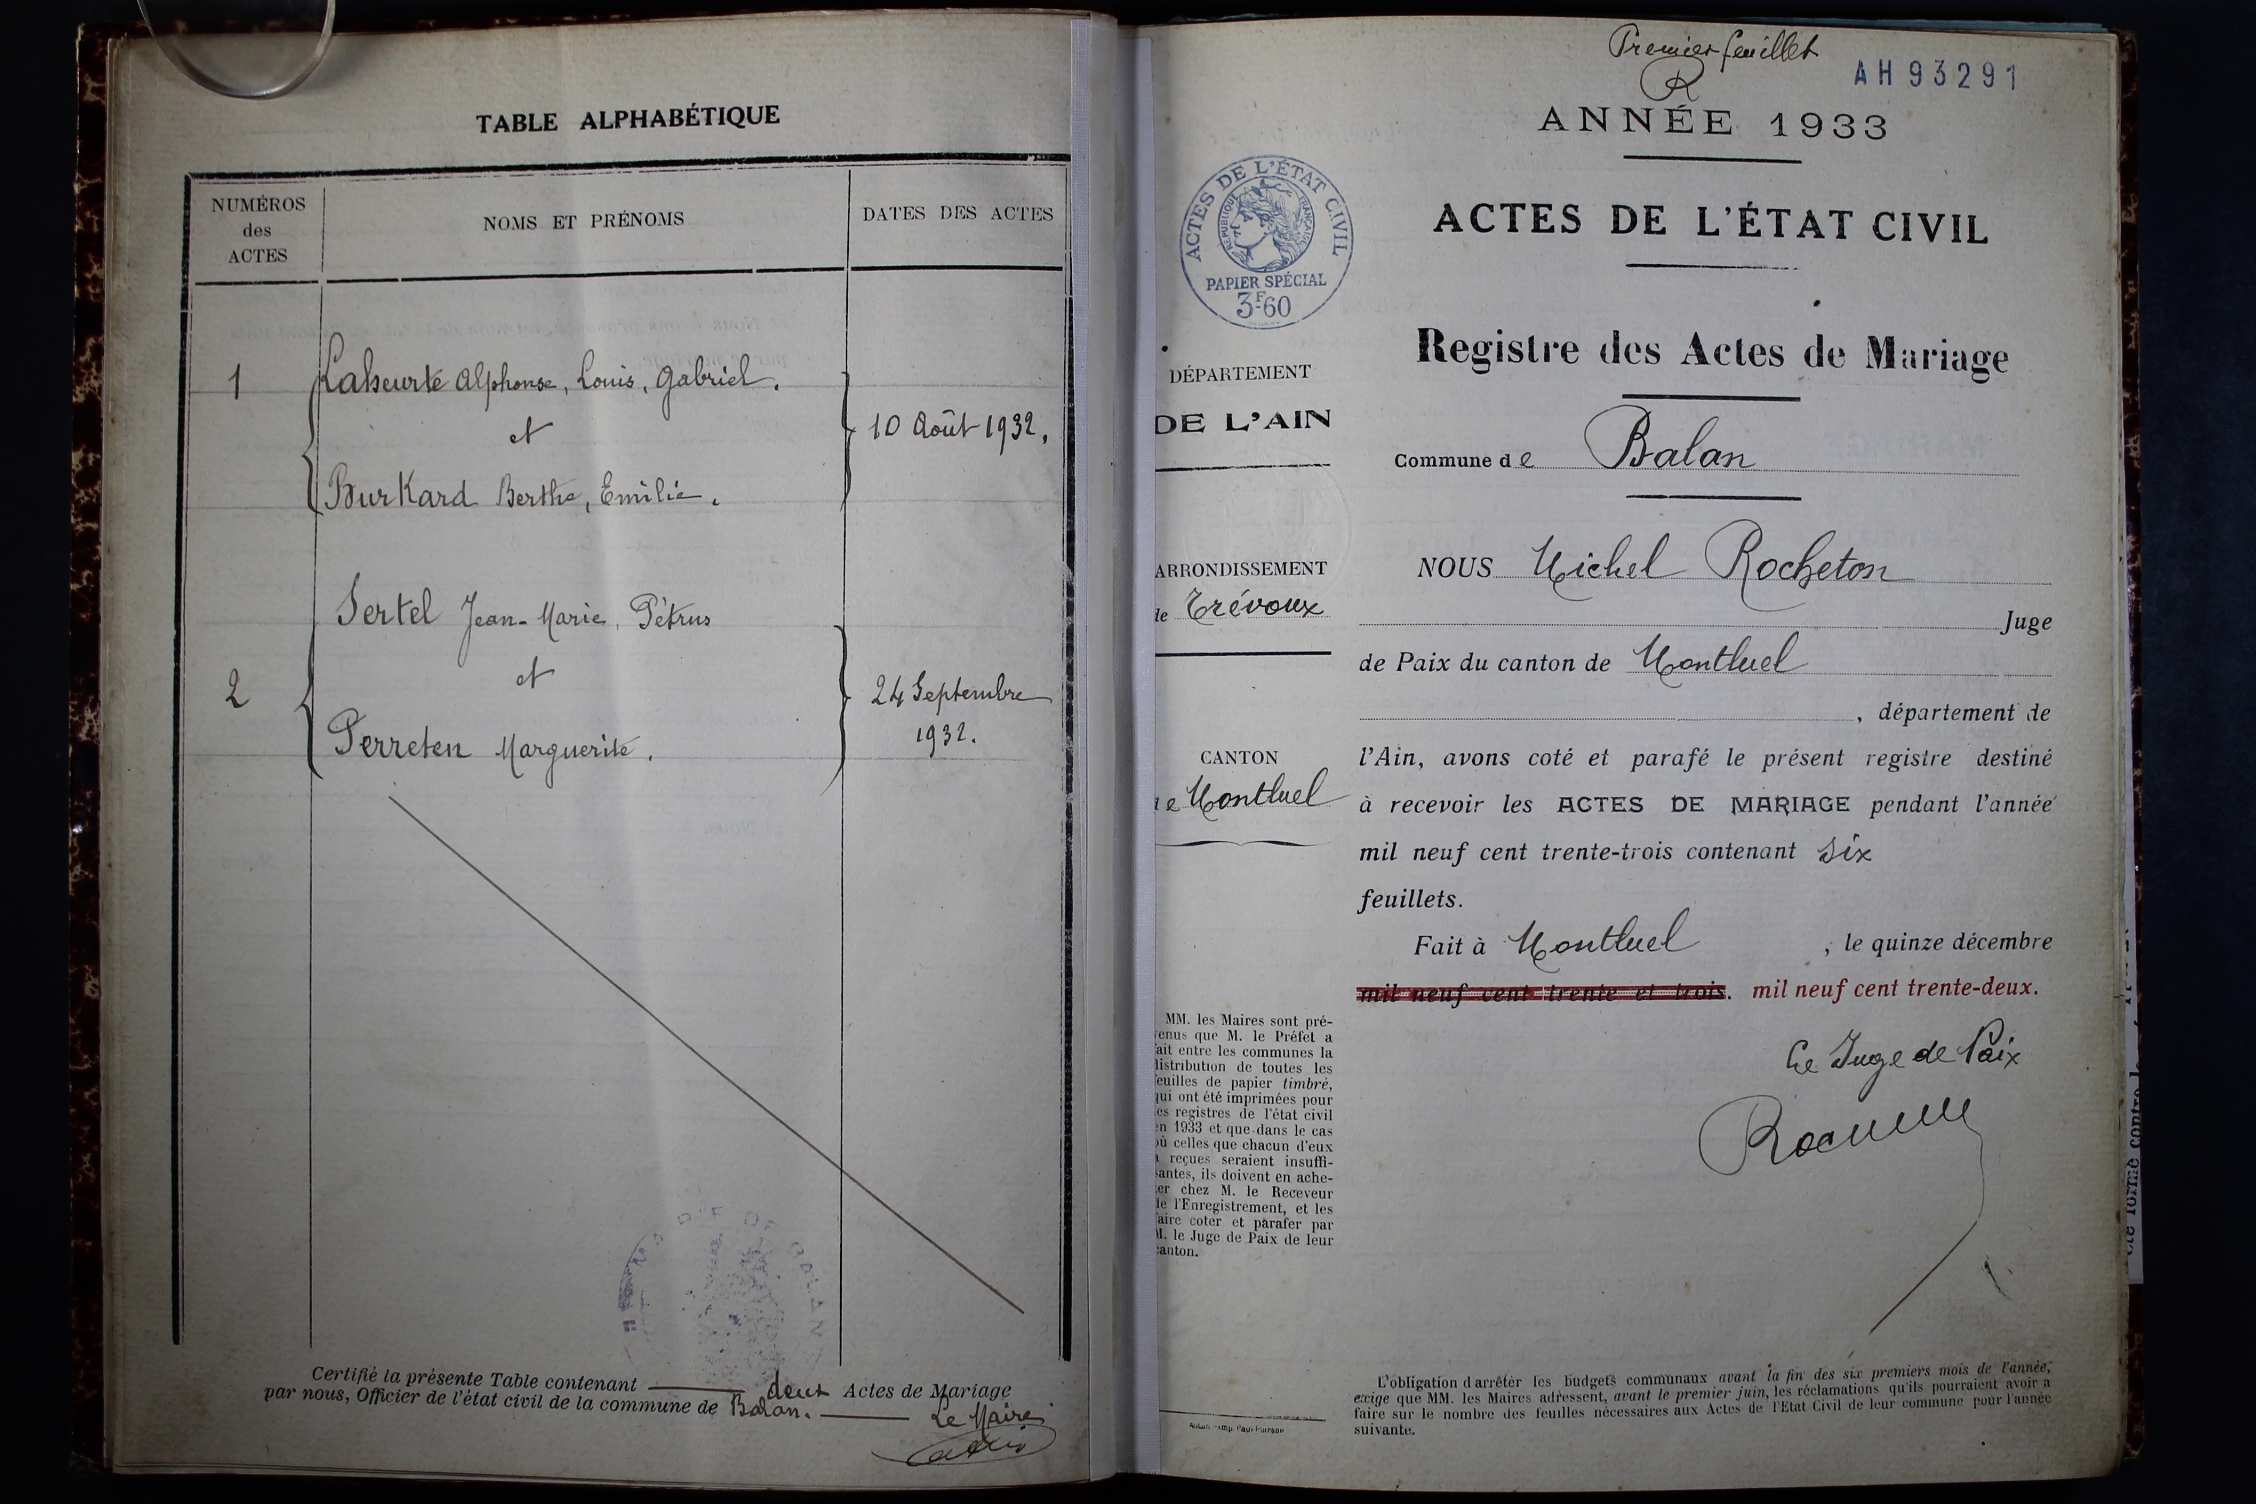 TABLE ALPHABÉTIQUE
NUMÉROS
des
ACTES
NOMS ET PRÉNOMS
DATES DES ACTES
1
Laheurte Alphonse, Louis, Gabriel.
et
10 Août 1932.
Burkard Berthe, Emilie.
Sertel Jean-Marie, Pétrus
2
et
24 Septembre
1932.
Perreten Marguerite.
Certifié la présente Table contenant deux Actes de Mariage
par nous, Officier de l'état civil de la commune de Balan.
Le Maire
Premier feuillet
R
AH 93291
ANNÉE 1933
ACTES DE L'ÉTAT CIVIL
RÉPUBLIQUE FRANÇAISE
PAPIER SPÉCIAL
3F60
ACTES DE L'ÉTAT CIVIL
Registre des Actes de Mariage
DÉPARTEMENT
DE L'AIN
Commune de Balan
ARRONDISSEMENT
de Trévoux
NOUS Michel Rocheton
Juge
de Paix du canton de Montluel
, département de
CANTON
de Montluel
l'Ain, avons coté et parafé le présent registre destiné
à recevoir les ACTES DE MARIAGE pendant l'année
mil neuf cent trente-trois contenant six
feuillets.
Fait à Montluel, le quinze décembre
mil neuf cent trente et trois. mil neuf cent trente-deux.
Le Juge de Paix
MM. les Maires sont pré-
enus que M. le Préfet a
ait entre les communes la
listribution de toutes les
euilles de papier timbré,
qui ont été imprimées pour
es registres de l'état civil
en 1933 et que dans le cas
où celles que chacun d'eux
a reçues seraient insuffi-
santes, ils doivent en ache-
er chez M. le Receveur
de l'Enregistrement, et les
aire coter et parafer par
M. le Juge de Paix de leur
canton.
L'obligation d'arrêter les budgets communaux avant la fin des six premiers mois de l'année,
exige que MM. les Maires adressent, avant le premier juin, les réclamations qu'ils pourraient avoir à
faire sur le nombre des feuilles nécessaires aux Actes de l'Etat Civil de leur commune pour l'année
suivante.